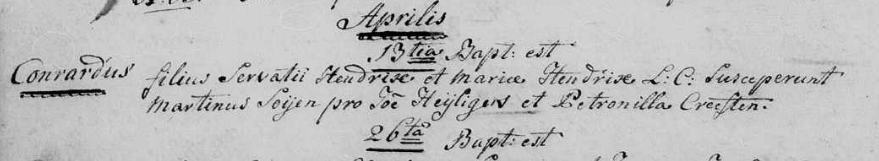 Aprilis
13tia Bapt: est
Conrardus filius Servatii Hendrix et mariæ Hendrix L: C: Susceperunt
Martinus Soijen pro Joē Heijligers et Petronilla Creften.
26ta Bapt: est